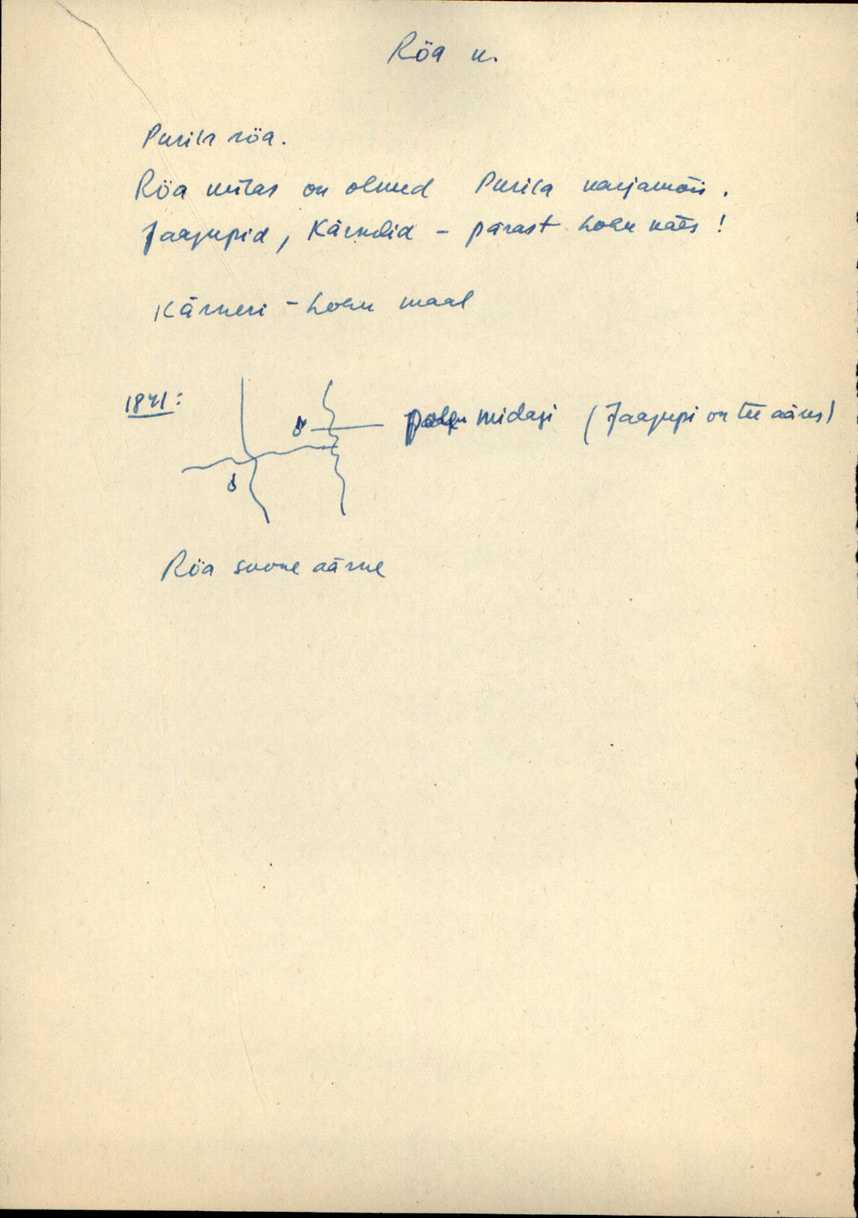 Röa k.
Purila röa.
Röa külas on olnud Purila karjamõis.
Jaagupid, Kärndid - pärast Lohu käes!
Kärneri - Lohu maal
1841:
midagi (Jaagupi on tee ääres)
Röa soone äärne